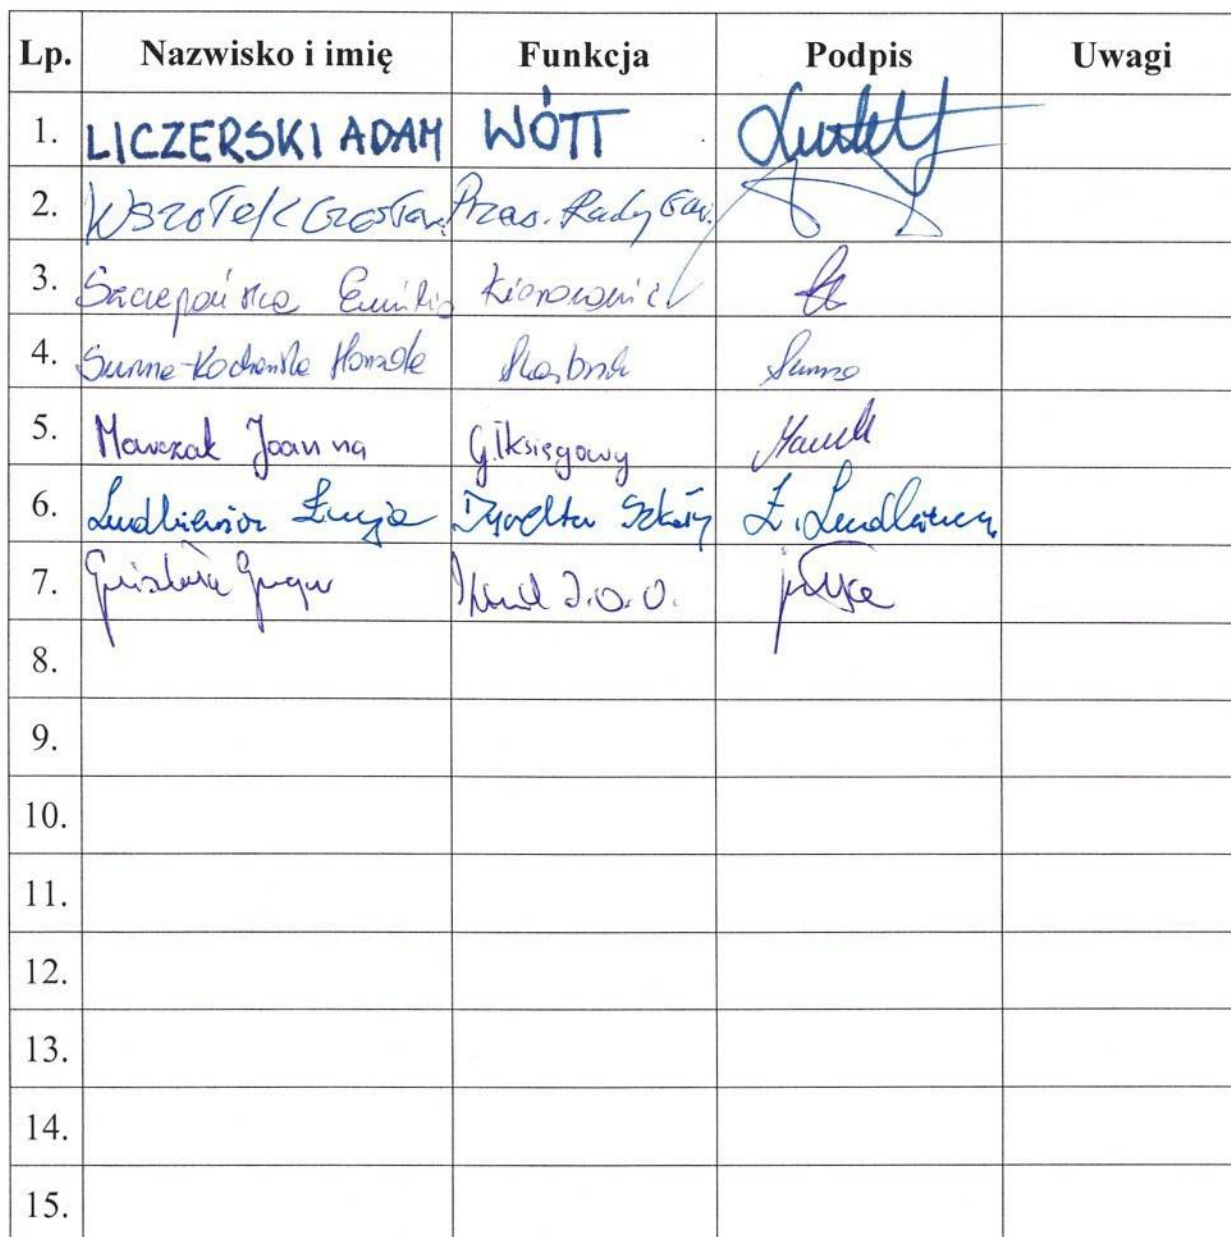 Lp. Nazwisko i imię Funkcja Podpis Uwagi
1. LICZERSKI ADAM WÓJT
2. Wszołek Czesław Przew. Rady Gm.
3. Szczepańska Emilia Kierownik
4. Surma-Kochańska Skarbnik Surma
5. Marczak Joanna Gł Księgowy
6. Ludkiewicz Łucja Dyrektor Szkoły Ł. Ludkiewicz
7.
8.
9.
10.
11.
12.
13.
14.
15.